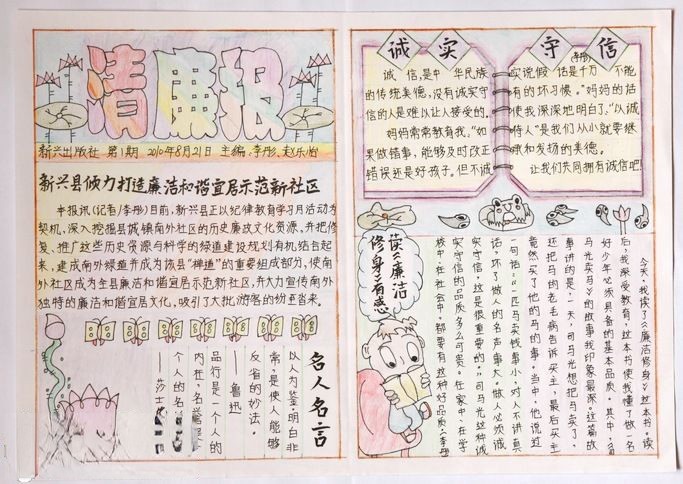 清廉报
新兴出版社 第1期 2010年8月21日 主编:李彤、赵乐怡
新兴县倾力打造廉洁和谐宜居示范新社区
本报讯(记者/李彤)目前,新兴县正以纪律教育学习月活动为
契机,深入挖掘县城镇南外社区的历史廉政文化资源,并把修
复、推广这些历史资源与科学的绿道建设规划有机结合起
来,建成南外绿道并成为该县“禅道”的重要组成部分,使南
外社区成为全县廉洁和谐宜居示范新社区,并大力宣传南外
独特的廉洁和谐宜居文化,吸引了大批游客的纷至沓来。
名人名言
以人为鉴,明白非
常,是使人能够
反省的妙法。
——鲁迅
品行是一个人的
内在,名誉是一
个人的
——莎士
诚实守信
诚信,是中华民族
的传统美德,没有诚实守
信的人是难以让人接受的。
妈妈常常教育我,“如
果做错事,能够及时改正
错误还是好孩子。但不诚
(李彤)
实说假话是千万不能
有的坏习惯。”妈妈的话
使我深深地明白了,“以诚
待人”是我们从小就要继
承和发扬的美德。
让我们共同拥有诚信吧!
读《廉洁
修身》有感
今天,我读了《廉洁修身》这本书。读
后,我深受教育,这本书使我懂了做一名
好少年必须具备的基本品质。其中,《司
马光卖马》的故事我印象最深。这篇故
事讲的是:一天,司马光想把马卖了,
还把马的老毛病告诉买主,最后买主
竟然买了他的马的事。当中,他说过
一句话:“一匹马卖钱事小,对人不讲真
话,坏了做人的名声事大。做人必须诚
实守信,这是很重要的。”司马光这种诚
实守信的品质多么可贵。在家中、在学
校中、在社会中,都要有这种好品质。(李彤)